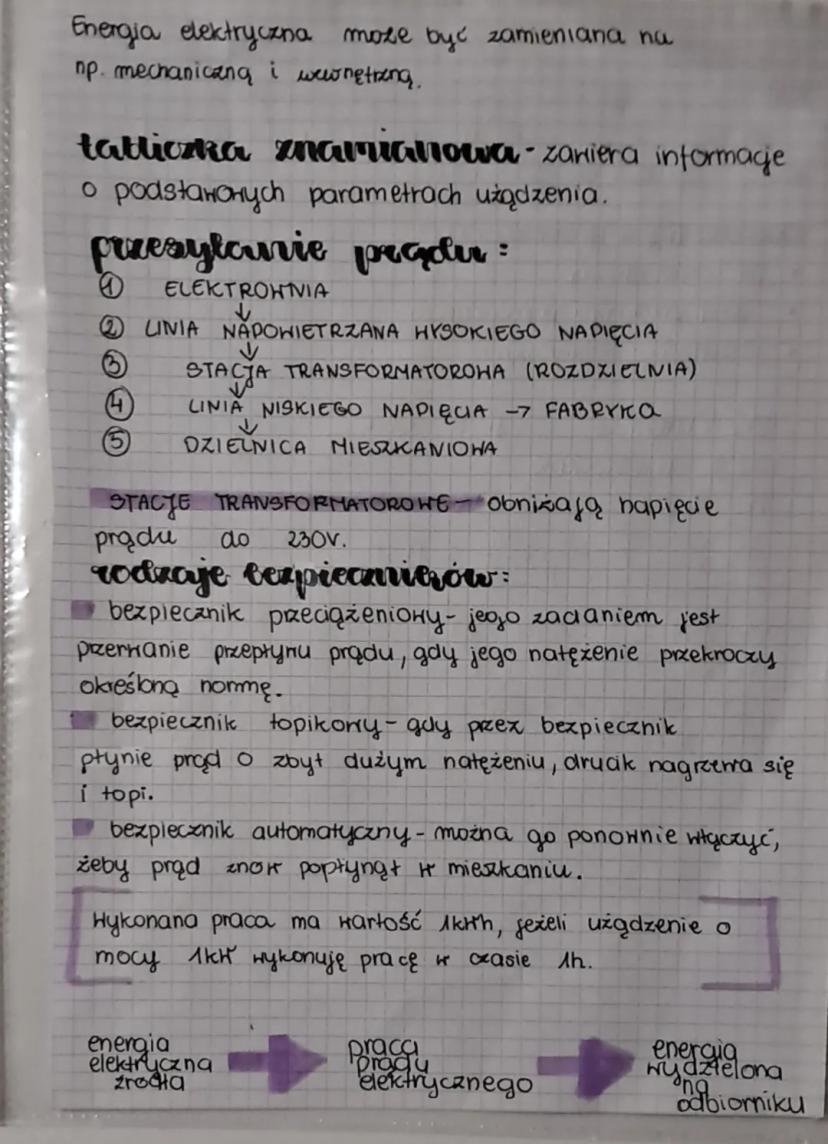 Energia elektryczna może być zamieniana na
np. mechaniczną i wewnętrzną.
tabliczka znamianowa - zawiera informacje
o podstawowych parametrach użądzenia.
przesyłanie prądu:
① ELEKTROWNIA
↓
② LINIA NAPOWIETRZANA WYSOKIEGO NAPIĘCIA
↓
③ STACJA TRANSFORMATOROWA (ROZDZIELNIA)
↓
④ LINIA NISKIEGO NAPIĘCIA → FABRYKA
↓
⑤ DZIELNICA MIESZKANIOWA
STACJE TRANSFORMATOROWE - obniżają napięcie
prądu do 230V.
rodzaje bezpieczników:
bezpiecznik przeciążeniowy - jego zadaniem jest
przerwanie przepływu prądu, gdy jego natężenie przekroczy
określoną normę.
bezpiecznik topikowy - gdy przez bezpiecznik
płynie prąd o zbyt dużym natężeniu, drucik nagrzewa się
i topi.
bezpiecznik automatyczny - można go ponownie włączyć,
żeby prąd znow popłynął w mieszkaniu.
Wykonana praca ma wartość 1kWh, jeżeli użądzenie o
mocy 1kW wykonuję pracę w czasie 1h.
energia
elektryczna
źrodła
praca
prądu
elektrycznego
energia
wydzielona
na
odbiorniku